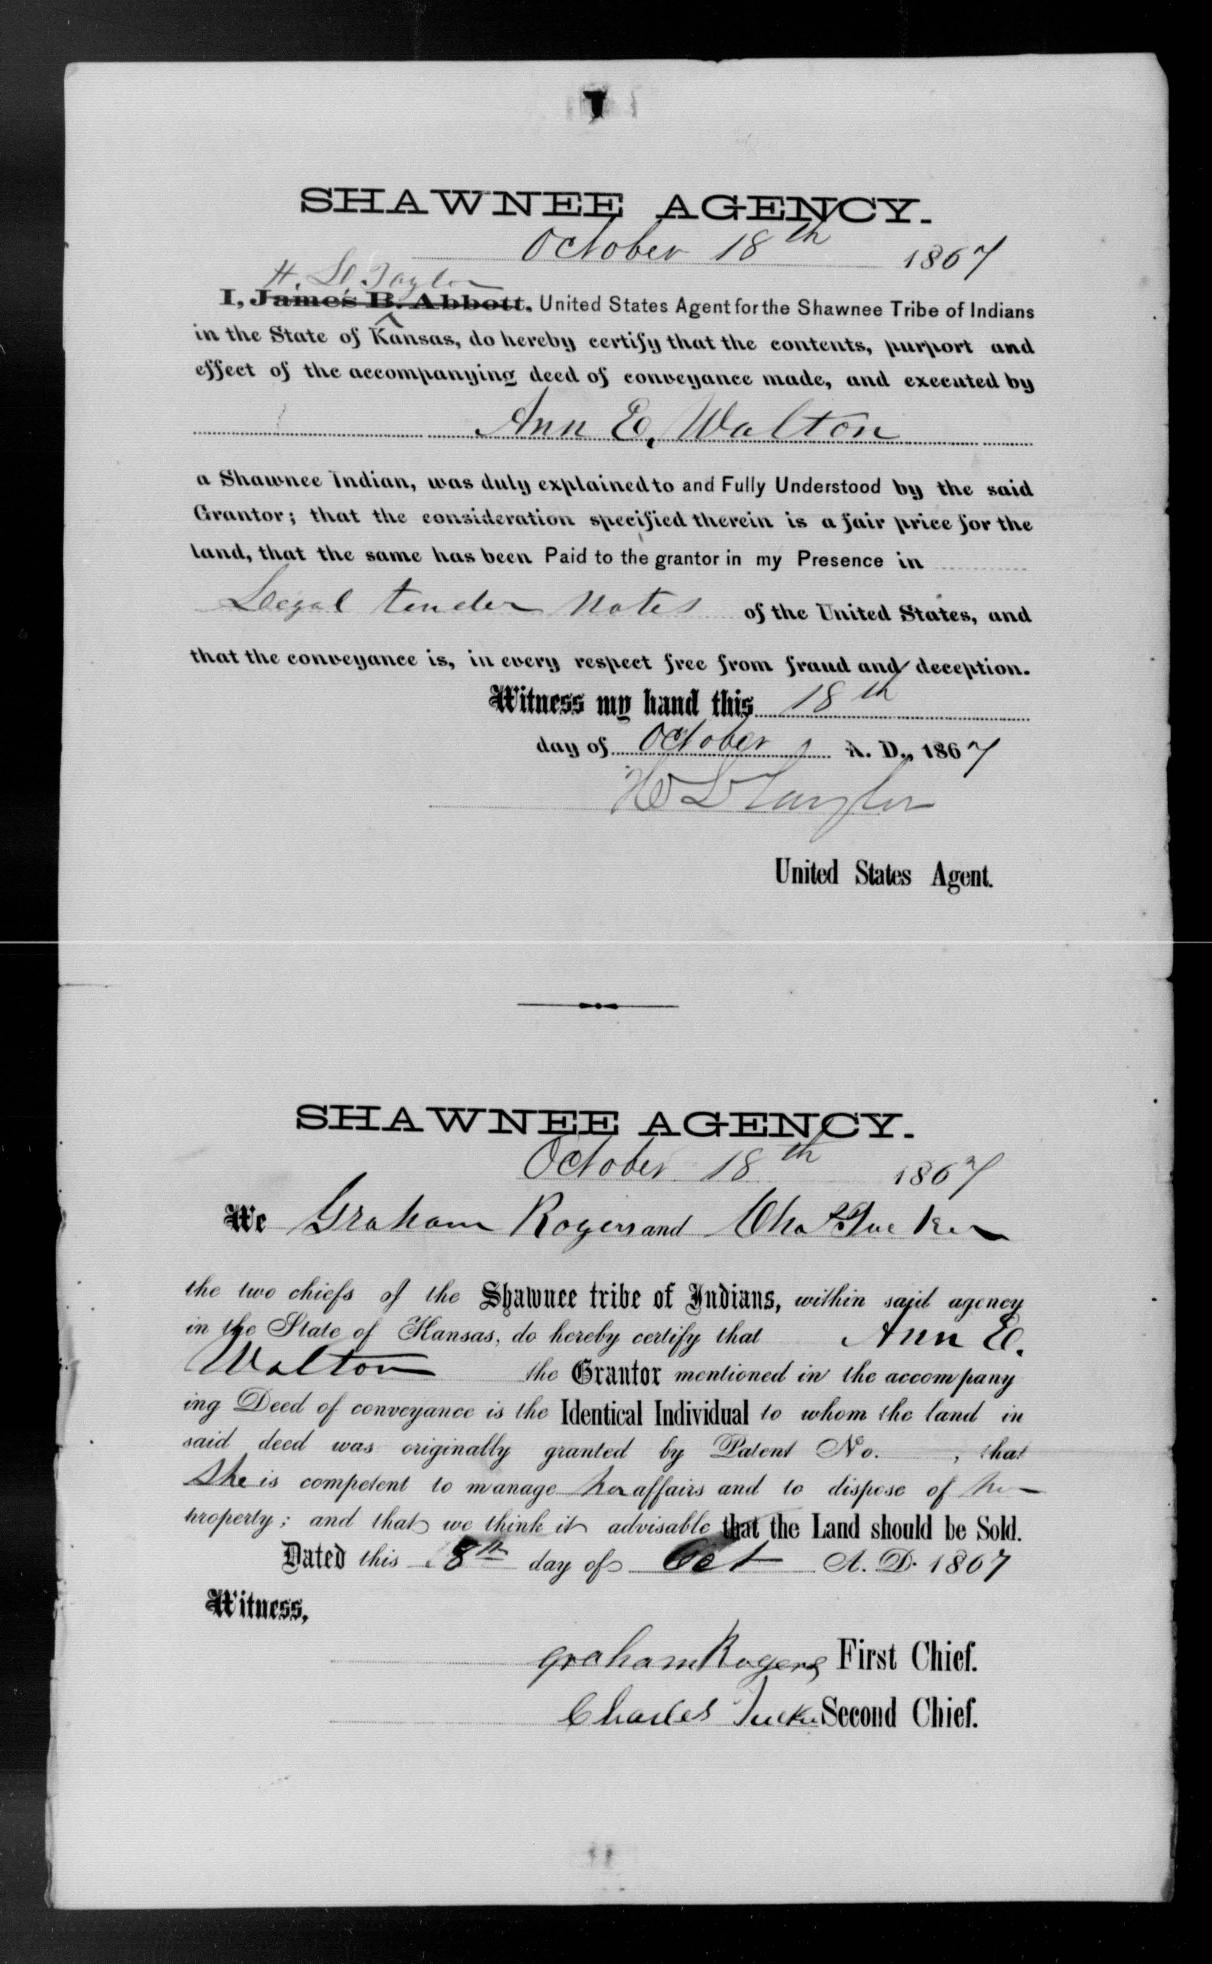 SHAWNEE AGENCY.
October 18th 1867
H. L. Taylor
I, James B. Abbott, United States Agent for the Shawnee Tribe of Indians
in the State of Kansas, do hereby certify that the contents, purport and
effect of the accompanying deed of conveyance made, and executed by
Ann E. Walton
a Shawnee Indian, was duly explained to and Fully Understood by the said
Grantor; that the consideration specified therein is a fair price for the
land, that the same has been Paid to the grantor in my Presence in
Legal tender notes of the United States, and
that the conveyance is, in every respect free from fraud and deception.
Witness my hand this 18th
day of October A. D., 1867
H L Taylor
United States Agent.
SHAWNEE AGENCY.
October 18th 1867
We Graham Rogers and Chas Tucker
the two chiefs of the Shawnee tribe of Indians, within said agency
in the State of Kansas, do hereby certify that Ann E.
Walton the Grantor mentioned in the accompany
ing Deed of conveyance is the Identical Individual to whom the land in
said deed was originally granted by Patent No. , that
She is competent to manage her affairs and to dispose of her
property; and that we think it advisable that the Land should be Sold.
Dated this 18th day of Oct A. D. 1867
Witness,
Graham Rogers First Chief.
Charles Tucker Second Chief.